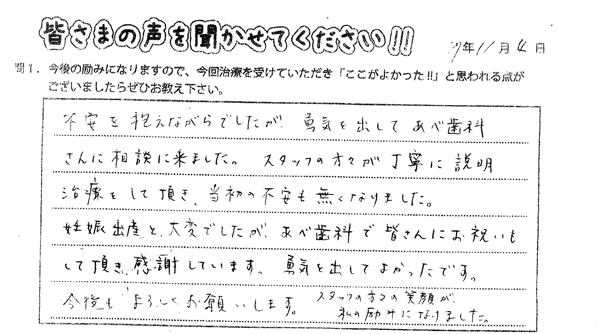 皆さまの声を聞かせてください!!
19年11月4日
問1．今後の励みになりますので、今回治療を受けていただき「ここがよかった!!」と思われる点が
ございましたらぜひお教え下さい。
不安を抱えながらでしたが、勇気を出して あべ歯科
さんに相談に来ました。 スタッフの方々が丁寧に説明
治療をして頂き、当初の不安も無くなりました。
妊娠出産と、大変でしたが、あべ歯科で皆さんにお祝いも
して頂き、感謝しています。勇気を出してよかったです。
今後も よろしくお願いします。 スタッフの方々の笑顔が、
私の励みになりました。